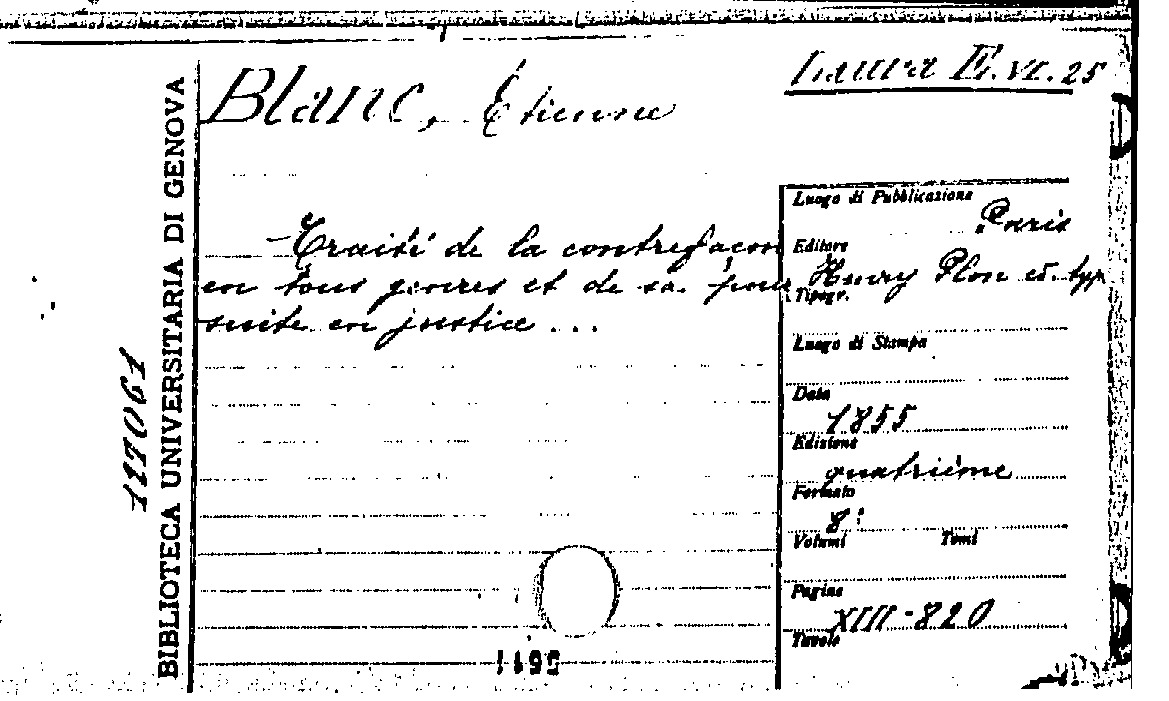 Laura E.VI.25
Blanc, Étienne
Traité de la contrefaçon
en tous genres et de sa pour
suite en justice ...
Luogo di Pubblicazione
Paris
Editore
Henry Plon
Tipogr.
Luogo di Stampa
Data
1855
Edizione
quatrième
Formato
8°
Volumi Tomi
Pagine
XIII-820
Tavole
BIBLIOTECA UNIVERSITARIA DI GENOVA
117061